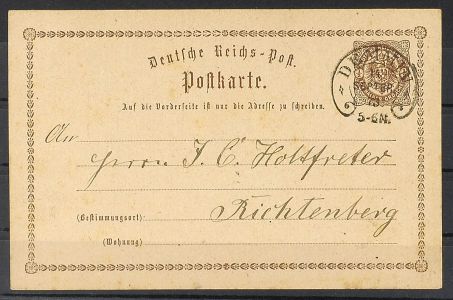 Deutsche Reichs-Post.
Postkarte.
Auf die Vorderseite ist nur die Adresse zu schreiben.
5-6N.
An
Herrn J. C. Holtfreter
(Bestimmungsort)
Richtenberg
(Wohnung)